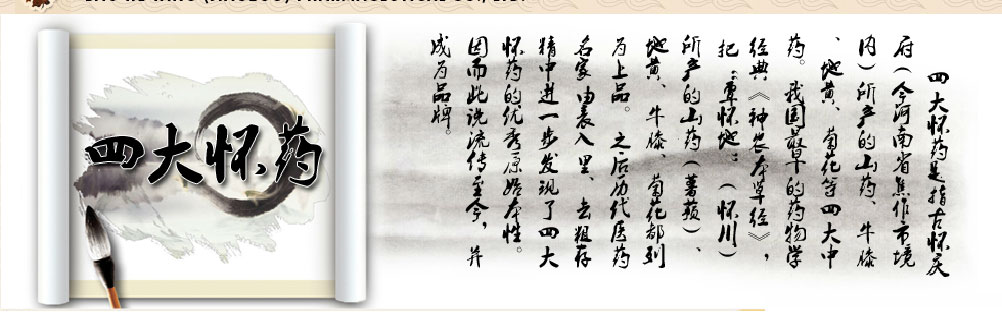 四大怀药
四大怀药是指古怀庆
府（今河南省焦作市境
内）所产的山药、牛膝
、地黄、菊花等四大中
药。我国最早的药物学
经典《神农本草经》，
把“覃怀地”（怀川）
所产的山药（薯蓣）、
地黄、牛膝、菊花都列
为上品。之后历代医药
名家由表入里、去粗存
精中进一步发现了四大
怀药的优秀原始本性。
因而此说流传至今，并
成为品牌。